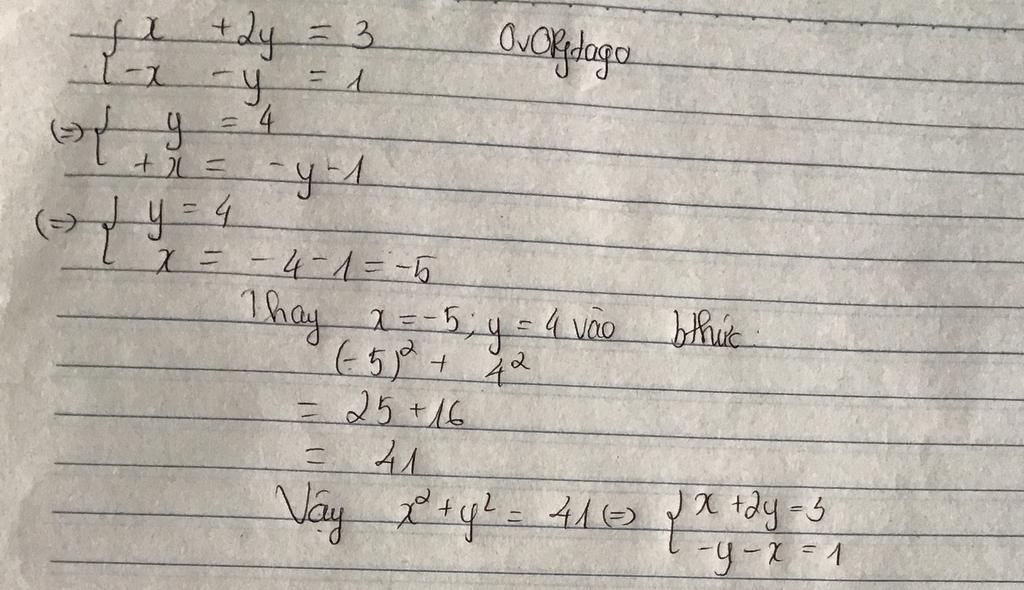 { x + 2y = 3
OvOPytago
{ -x - y = 1
(=> { y = 4
+x = -y - 1
(=> { y = 4
x = -4 - 1 = -5
Thay x = -5; y = 4 vào bthức:
(-5)² + 4²
= 25 + 16
= 41
Vậy x² + y² = 41 (=> { x + 2y = 3
-y - x = 1